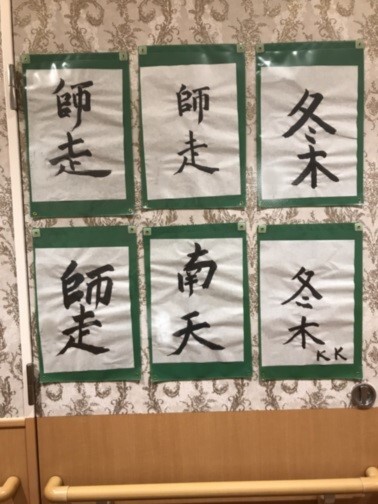 師走
師走
冬木
師走
南天
冬木
KK